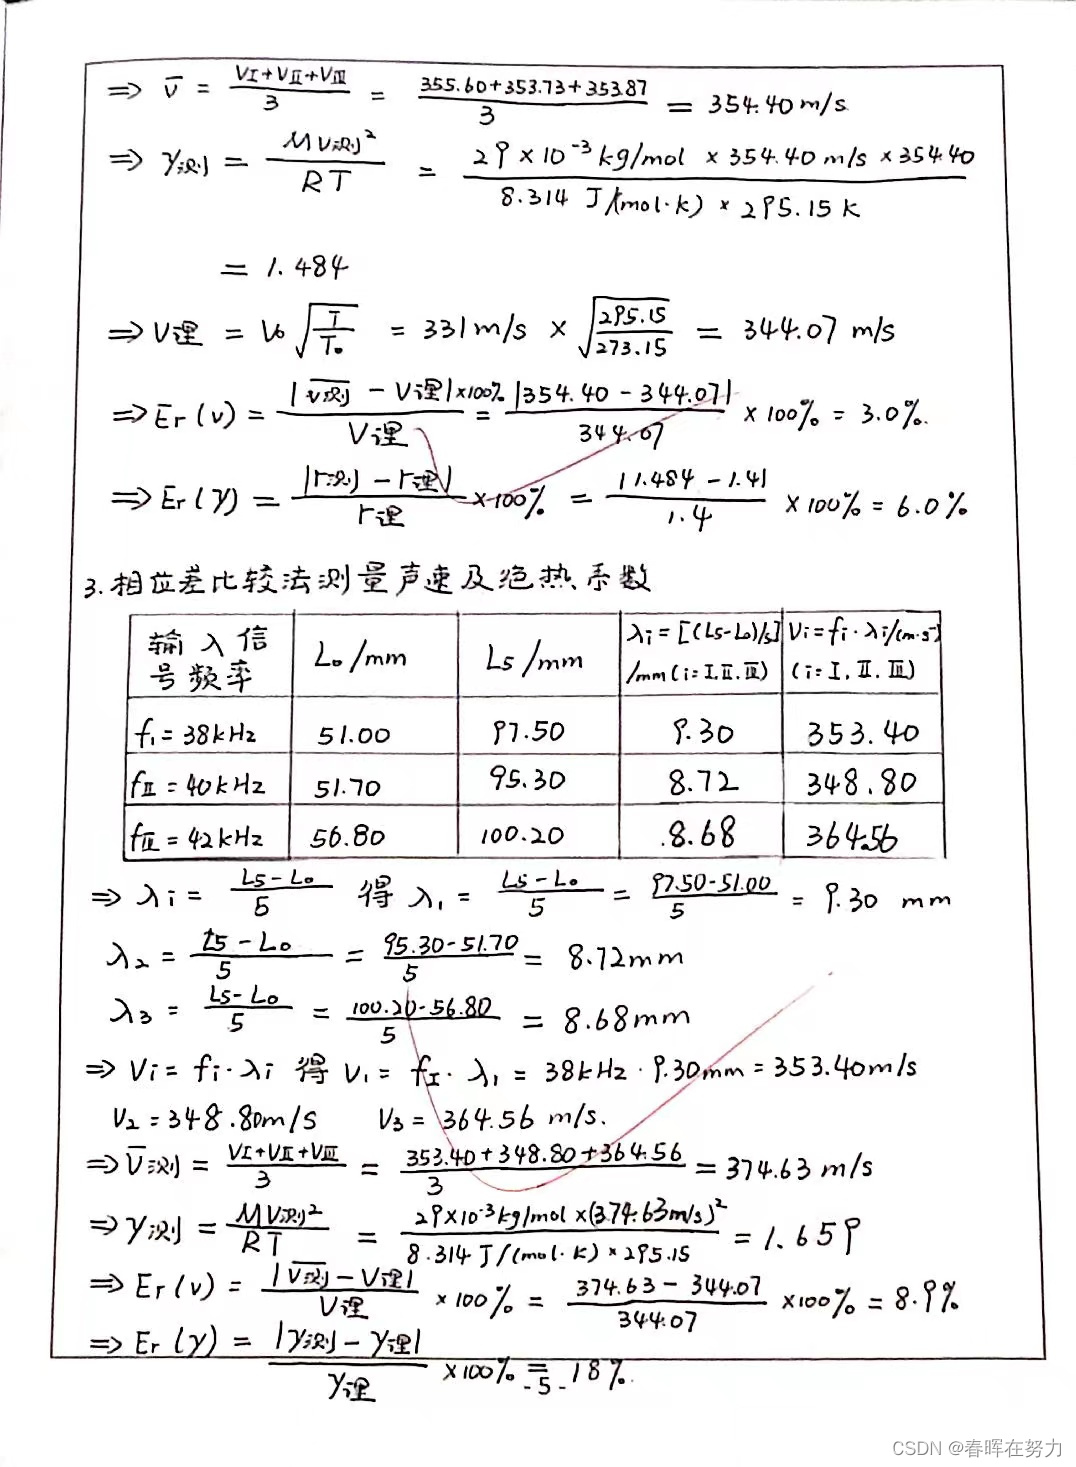 ⇒ v̄ = (VⅠ+VⅡ+VⅢ)/3 = (355.60+353.73+353.87)/3 = 354.40 m/s
⇒ γ测 = MV测²/RT = (29×10⁻³kg/mol × 354.40 m/s × 354.40)/(8.314 J/(mol·k) × 295.15 K)
= 1.484
⇒ V理 = V₀√(T/T₀) = 331m/s × √(295.15/273.15) = 344.07 m/s
⇒ Er(v) = |v̄测 - V理|×100%/V理 = |354.40-344.07|/344.07 × 100% = 3.0%.
⇒ Er(γ) = |r测 - r理|/r理 ×100% = |1.484-1.4|/1.4 ×100% = 6.0%
3.相位差比较法测量声速及绝热系数
输入信号频率 L₀/mm L5/mm λi=[(L5-L₀)/5]/mm(i=Ⅰ.Ⅱ.Ⅲ) Vi=fi·λi/(m·s⁻¹)(i=Ⅰ.Ⅱ.Ⅲ)
f₁=38kHz 51.00 97.50 9.30 353.40
fⅡ=40kHz 51.70 95.30 8.72 348.80
fⅢ=42kHz 56.80 100.20 8.68 364.56
⇒ λi = (L5-L₀)/5 得 λ₁ = (L5-L₀)/5 = (97.50-51.00)/5 = 9.30 mm
λ₂ = (L5-L₀)/5 = (95.30-51.70)/5 = 8.72mm
λ₃ = (L5-L₀)/5 = (100.20-56.80)/5 = 8.68mm
⇒ Vi=fi·λi 得 V₁ = fⅠ·λ₁ = 38kHz·9.30mm=353.40m/s
V₂=348.80m/S V₃=364.56 m/s.
⇒ V̄测 = (VⅠ+VⅡ+VⅢ)/3 = (353.40+348.80+364.56)/3 = 374.63 m/s
⇒ γ测 = MV测²/RT = (29×10⁻³kg/mol×(374.63m/s)²)/(8.314 J/(mol·K)×295.15) = 1.659
⇒ Er(v) = |V̄测-V理|/V理 ×100% = (374.63-344.07)/344.07 ×100% = 8.9%
⇒ Er(γ) = |γ测-γ理|/γ理 ×100% = 18%.
-5-
CSDN @春晖在努力